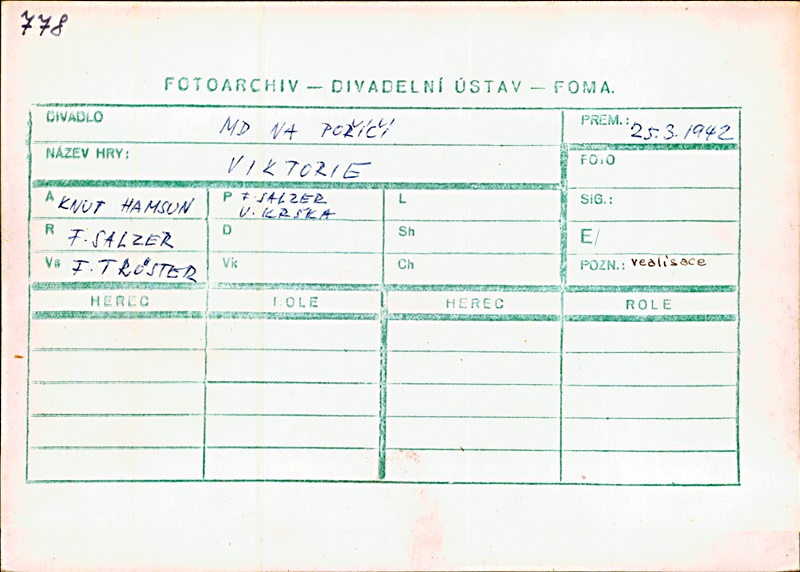 778
FOTOARCHIV — DIVADELNÍ ÚSTAV — FOMA.
DIVADLO MD NA POŘÍČÍ
PREM.: 25.3.1942
NÁZEV HRY: VIKTORIE
FOTO
A KNUT HAMSUN
P F. SALZER
V. KRŠKA
L
SIG.:
R F. SALZER
D
Sh
E/
Vs F. TRÖSTER
Vk
Ch
POZN.: realisace
HEREC ROLE HEREC ROLE